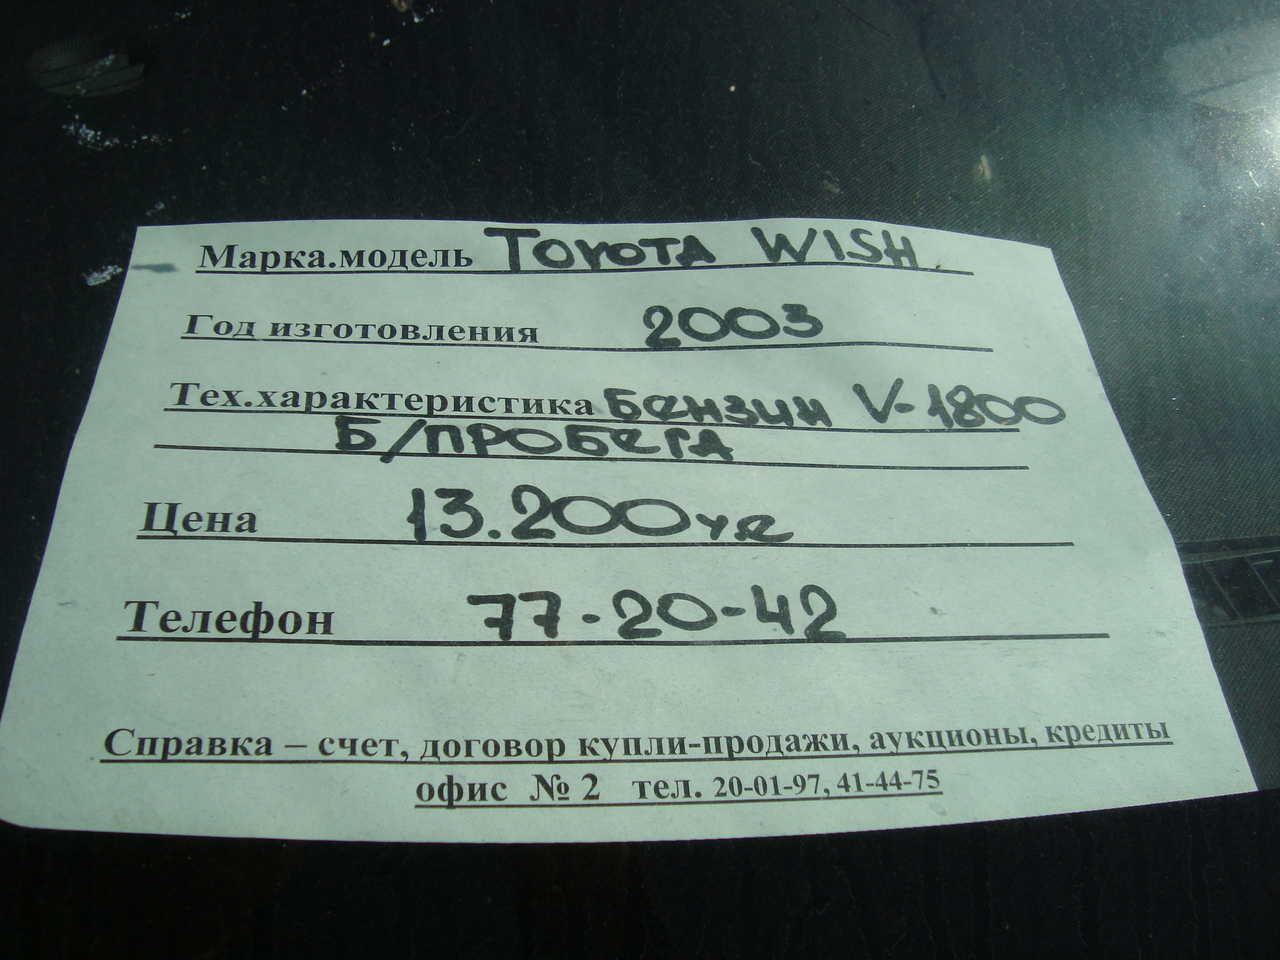 Марка.модель TOYOTA WISH
Год изготовления 2003
Тех.характеристика БЕНЗИН V-1800
Б/ПРОБЕГА
Цена 13.200 у.е
Телефон 77-20-42
Справка – счет, договор купли-продажи, аукционы, кредиты
офис № 2 тел. 20-01-97, 41-44-75